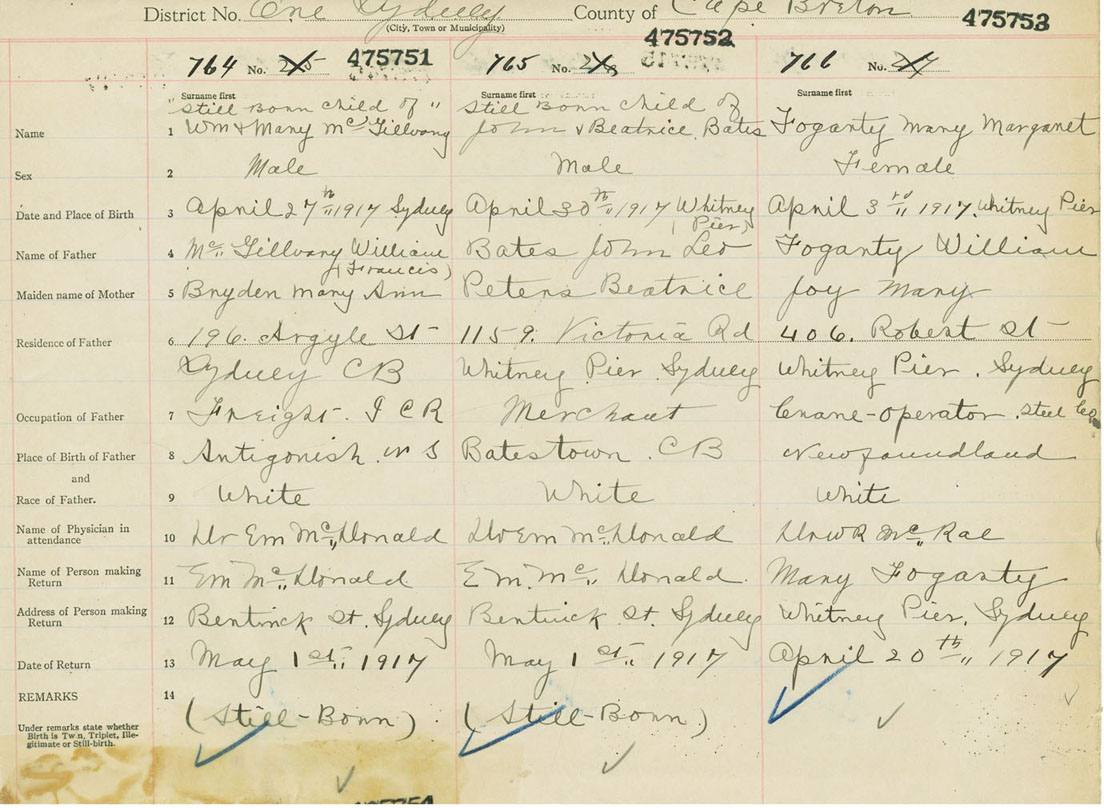 District No. One Sydney County of Cape Breton
(City, Town or Municipality)
475751 475752 475753
764 No. 765 No. 766 No.
Surname first Surname first Surname first
Still Born child of " Still Born child of
Name 1 Wm & Mary McGillvary John & Beatrice Bates Fogarty Mary Margaret
Sex 2 Male Male Female
Date and Place of Birth 3 April 27th 1917 Sydney April 30th 1917 Whitney April 3rd 1917. Whitney Pier
(Pier)
Name of Father 4 McGillvary William Bates John Leo Fogarty William
(Francis)
Maiden name of Mother 5 Bryden Mary Ann Peters Beatrice Joy Mary
Residence of Father 6 196. Argyle St 1159. Victoria Rd 406. Robert St
Sydney CB Whitney Pier Sydney Whitney Pier. Sydney
Occupation of Father 7 Freight. I C R Merchant Crane-operator. Steel Co
Place of Birth of Father 8 Antigonish. N S Batestown. CB Newfoundland
and
Race of Father. 9 White White White
Name of Physician in attendance 10 Dr Em McDonald Dr Em McDonald Dr W R McRae
Name of Person making Return 11 Em McDonald. Em. McDonald. Mary Fogarty
Address of Person making Return 12 Bentinck St. Sydney Bentinck St. Sydney Whitney Pier. Sydney
Date of Return 13 May 1st 1917 May 1st 1917 April 20th 1917
REMARKS 14
(Still-Born) (Still-Born)
Under remarks state whether
Birth is Twin, Triplet, Ille-
gitimate or Still-birth.